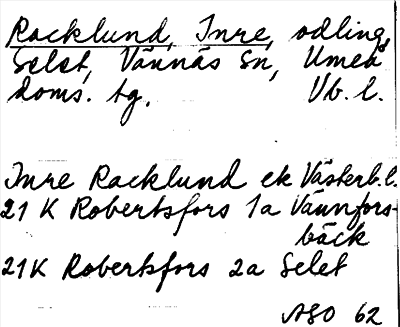 Racklund, Inre, odling,
Selet, Vännäs Sn, Umeå
doms. tg. Vb. l.
Inre Racklund ek Västerb.l.
21 K Robertsfors 1a Vännfors-
bäck
21K Robertsfors 2a Selet
ASO 62